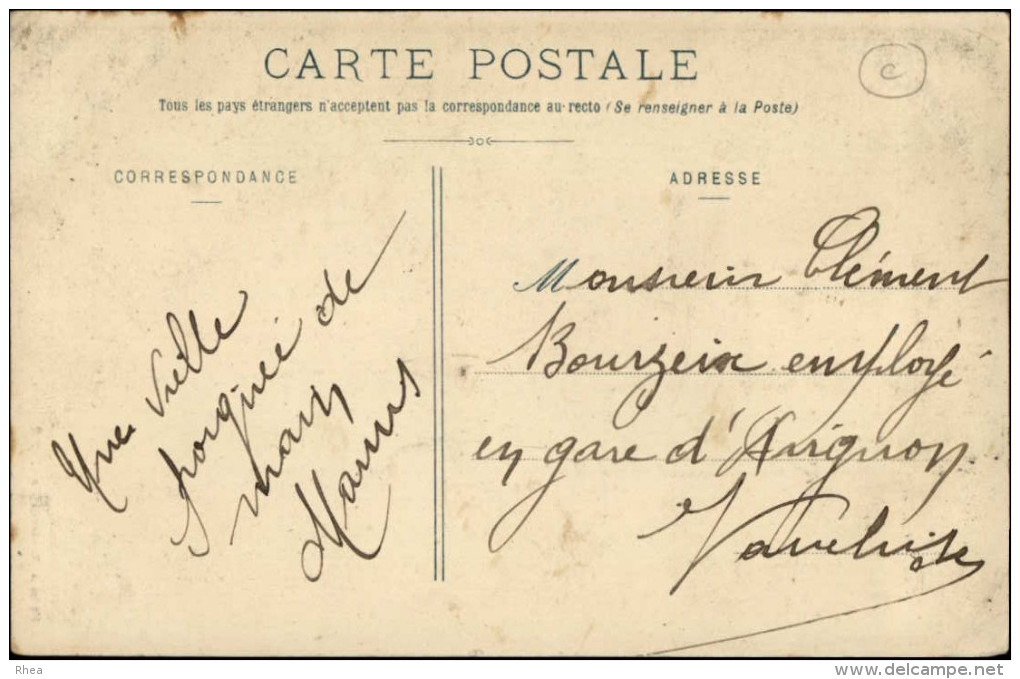 CARTE POSTALE
C
Tous les pays étrangers n'acceptent pas la correspondance au recto (Se renseigner à la Poste)
CORRESPONDANCE
Une
de
main
ADRESSE
Monsieur Clément
Bourzeix employé
en gare d'Avignon
Vaucluse
Rhea
www.delcampe.net